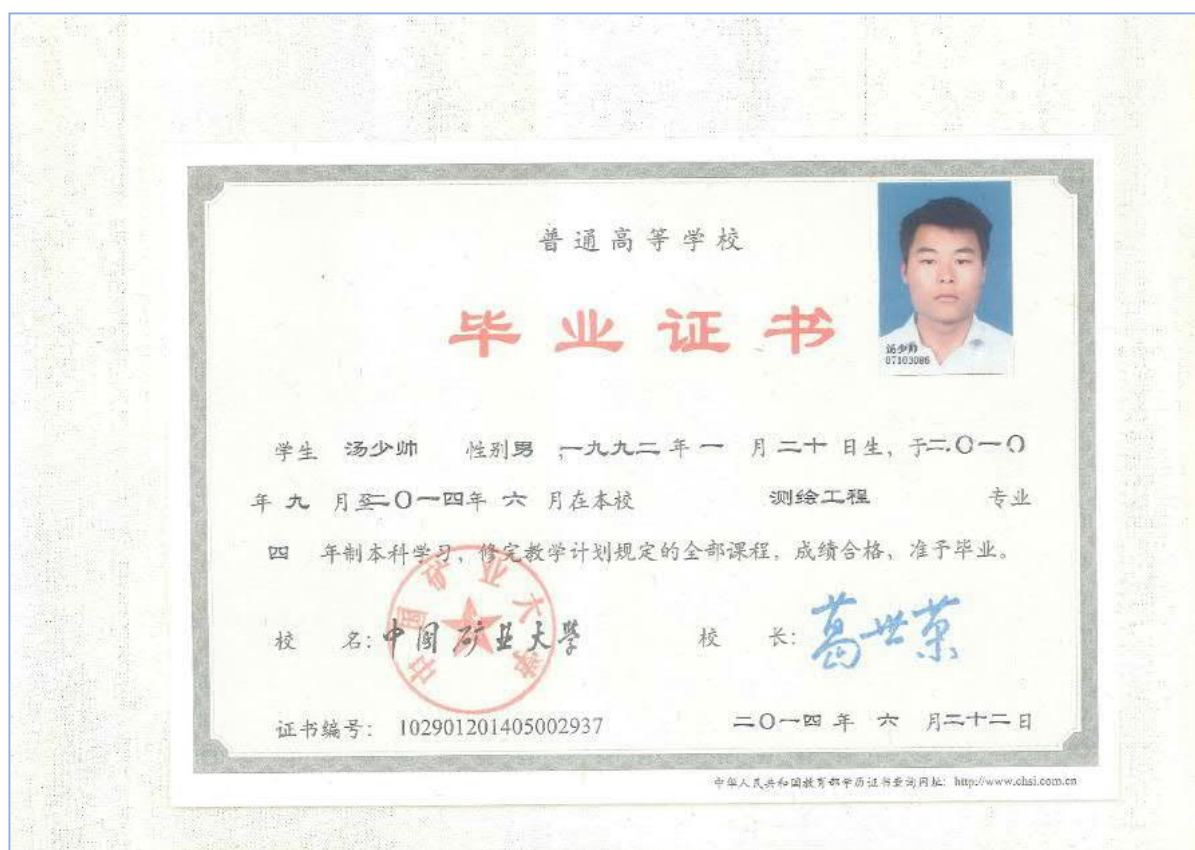 普通高等学校
毕业证书
汤少帅
07103086
学生 汤少帅 性别 男 ,一九九二 年 一 月 二十 日生, 于二〇一〇
年 九 月至二〇一四年 六 月在本校 测绘工程 专业
四 年制本科学习, 修完教学计划规定的全部课程, 成绩合格, 准予毕业。
中国矿业大学
校 名: 中国矿业大学 校 长: 葛世荣
证书编号: 102901201405002937 二〇一四 年 六 月二十二日
中华人民共和国教育部学历证书查询网址: http://www.chsi.com.cn